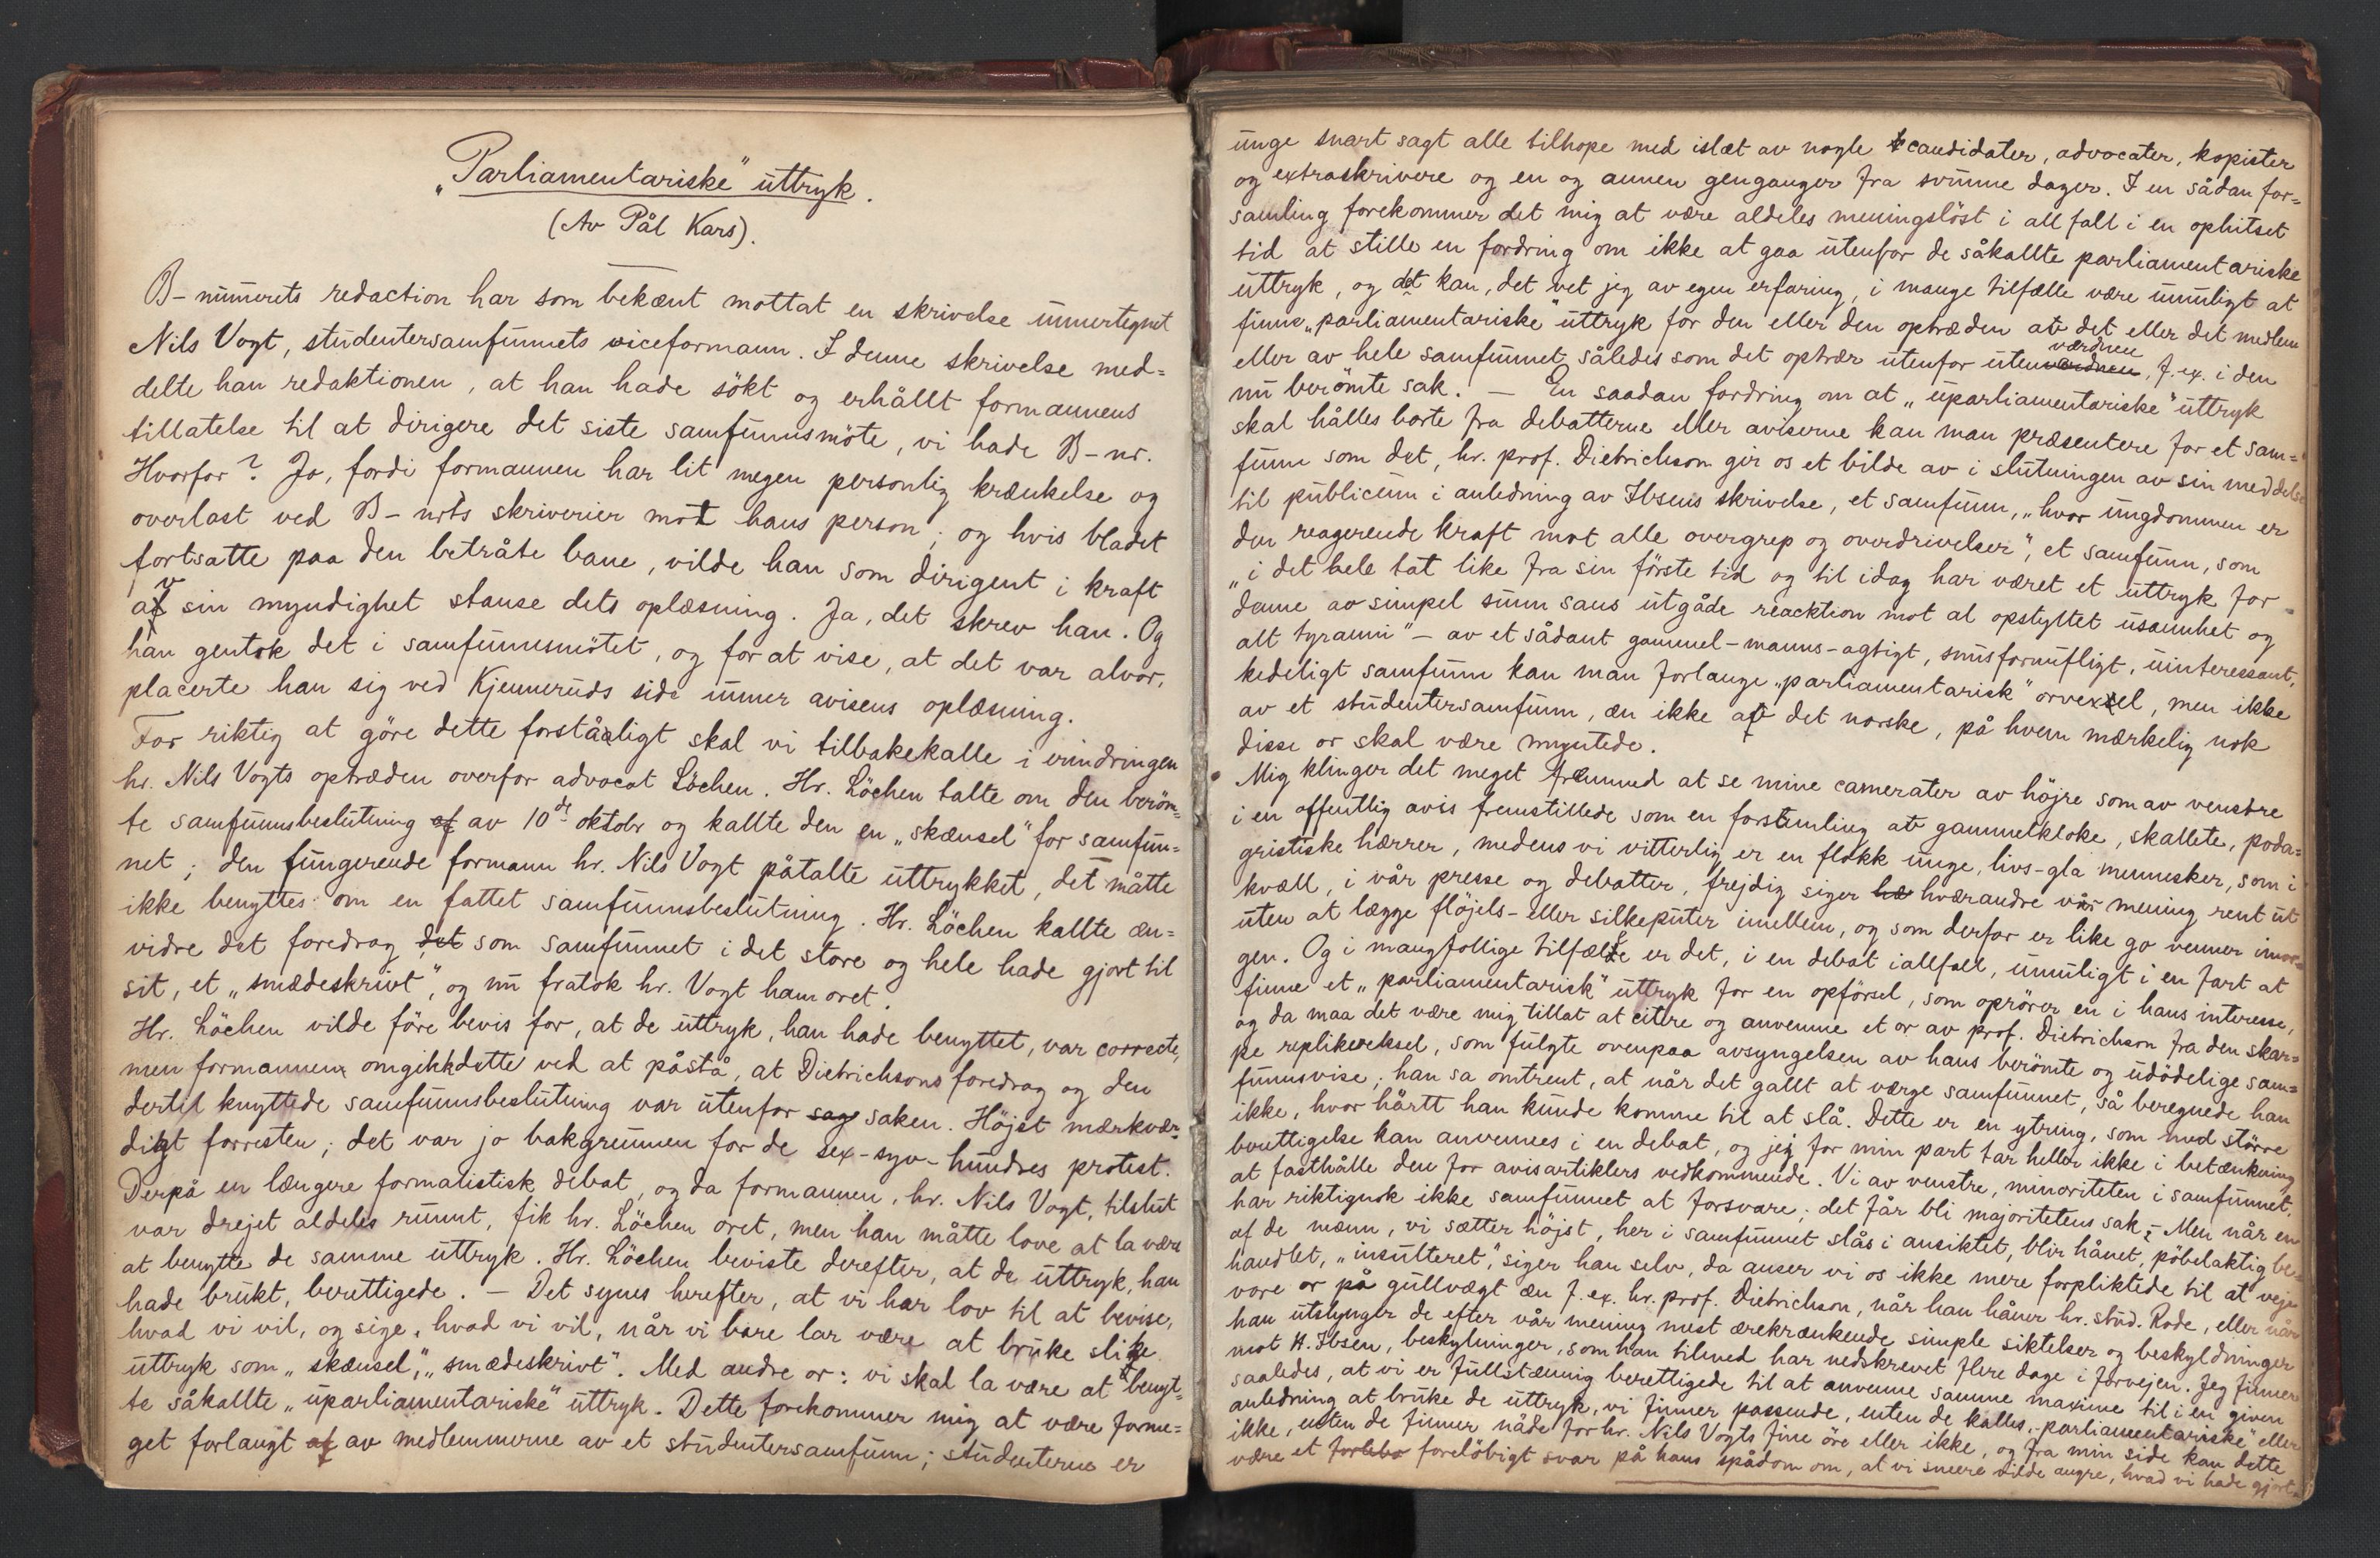 „Parliamentariske" uttryk.
(Av Pål Kars).
B-numrets redaction har som bekænt mottat en skrivelse unnertegnet
Nils Vogt, studentersamfunnets viceformann. I denne skrivelse med=
delte han redaktionen, at han hade sökt og erhållt formannens
tillatelse til at dirigere det siste samfunnsmöte, vi hade B-nr.
Hvorfor? Jo, fordi formannen har lit megen personlig krænkelse og
overlast ved B-nrts skriverier mot hans person; og hvis bladet
fortsatte paa den betråte bane, vilde han som dirigent i kraft
av sin myndighet stanse dets oplæsning. Ja, det skrev han. Og
han gentok det i samfunnsmötet, og for at vise, at det var alvor,
placerte han sig ved Kjenneruds side unner avisens oplæsning.
For riktig at göre dette forståeligt skal vi tilbakekalle i erindringen
hr. Nils Vogts optræden overfor advocat Löchen. Hr. Löchen talte om den beröm=
te samfunnsbeslutning af av 10de oktobr og kallte den en „skænsel" for samfun=
net; den fungerende formann hr. Nils Vogt påtalte uttrykket, det måtte
ikke benyttes om en fattet samfunnsbeslutning. Hr. Löchen kallte æn=
vidre det foredrag det som samfunnet i det store og hele hade gjort til
sit, et „smædeskrivt", og nu fratok hr. Vogt ham oret.
Hr. Löchen vilde före bevis for, at de uttryk, han hade benyttet, var correcte,
men formannen omgikk dette ved at påstå, at Dietrichsons foredrag og den
dertil knyttede samfunnsbeslutning var utenfor sag saken. Höjst mærkvær=
digt forresten; det var jo bakgrunnen for de sex-syv-hundres protest.
Derpå en længere formalistisk debat, og da formannen, hr. Nils Vogt, tilslut
var drejet aldeles runnt, fik hr. Löchen oret, men han måtte love at la være
at benytte de samme uttryk. Hr. Löchen beviste derefter, at de uttryk, han
hade brukt, berettigede. – Det synes herefter, at vi har lov til at bevise,
hvad vi vil, og sige, hvad vi vil, når vi bare lar være at bruke slike
uttryk som „skænsel", „smædeskrivt". Med andre or: vi skal la være at benyt=
te såkallte „uparliamentariske" uttryk. Dette forekommer mig at være forme=
get forlangt af av medlemmerne av et studentersamfunn; studenterne er
unge snart sagt alle tilhope med islæt av nogle candidater, advocater, kopister
og extraskrivere og en og annen genganger fra svunne dager. I en sådan for=
samling forekommer det mig at være aldeles meningslöst i all fall i en ophitset
tid at stille en fordring om ikke at gaa utenfor de såkallte parliamentariske
uttryk, og det kan, det vet jeg av egen erfaring, i mange tilfælle være umuligt at
finne „parliamentariske" uttryk for den eller den optræden av det eller det medlem
eller av hele samfunnet således som det optrær utenfor utenværdnen værdnen, f. ex. i den
nu berömte sak. – En saadan fordring om at „uparliamentariske" uttryk
skal hålles borte fra debatterne eller aviserne kan man præsentere for et sam=
funn som det, hr. prof. Dietrichson gir os et bilde av i slutningen av sin meddelse
til publicum i anledning av Ibsens skrivelse, et samfunn, „hvor ungdommen er
den reagerende kraft mot alle overgrep og overdrivelser", et samfunn, som
„i det hele tat like fra sin förste tid og til idag har været et uttryk for
denne av simpel sunn sans utgåde reacktion mot al opstyltet usannhet og
alt tyranni" – av et sådant gammel-manns-agtigt, snusfornufligt, uinteressant,
kedeligt samfunn kan man forlange „parliamentarisk" orvexel, men ikke
av et studentersamfunn, æn ikke av det norske, på hvem mærkelig nok
disse or skal være myntede.
Mig klinger det meget fremmed at se mine camerater av höjre som av venstre
i en offentlig avis fremstillede som en forsamling av gammelkloke, skallete, poda=
gristiske hærrer, medens vi vitterlig er en flokk unge, livs-gla mennesker, som i
kvæll, i vår presse og debatter, frejdig siger hværandre vår mening rent ut
uten at lægge flöjels- eller silkeputer imellem, og som derfor er like go venner imor=
gen. Og i mangfollige tilfælle er det, i en debat iallfall, umuligt i en fart at
finne et „parliamentarisk" uttryk for en opförsel, som oprörer en i hans interesse,
og da maa det være mig tillat at citere og anvenne et or av prof. Dietrichson fra den skar=
pe replikveksel, som fulgte ovenpaa avsyngelsen av hans berömte og udödelige sam=
funnsvise; han sa omtrent, at når det gallt at værge samfunnet, så beregnede han
ikke, hvor hårtt han kunde komme til at slå. Dette er en ytring, som med större
berettigelse kan anvennes i en debat, og jeg for min part tar heller ikke i betænkning
at fasthålle den for avisartiklers vedkommende. Vi av venstre, minoriteten i samfunnet,
har riktignok ikke samfunnet at forsvare; det får bli majoritetens sak; Men når en
af de mænn, vi sætter höjst, her i samfunnet slås i ansiktet, blir hånet, pöbelaktig be=
handlet, „insulteret", siger han selv, da anser vi os ikke mere forpliktede til at veje
vore or på gullvægt æn f. ex. hr. prof. Dietrichson, når han håner hr. stud. Rode, eller når
han utslynger de efter vår mening mest ærekrænkende simple siktelser og beskyldninger
mot H. Ibsen, beskylninger, som han tilmed har nedskrevet flere dage i forvejen. Jeg finner
saaledes, at vi er fullstænnig berettigede til at anvenne samme maxime til i en given
anledning at bruke de uttryk, vi finner passende, enten de kalles „parliamentariske" eller
ikke, enten de finner nåde for hr. Nils Vogts fine öre eller ikke, og fra min side kan dette
være et forelöbigt svar på hans spådom om, at vi senere vilde angre, hvad vi hade gjort.